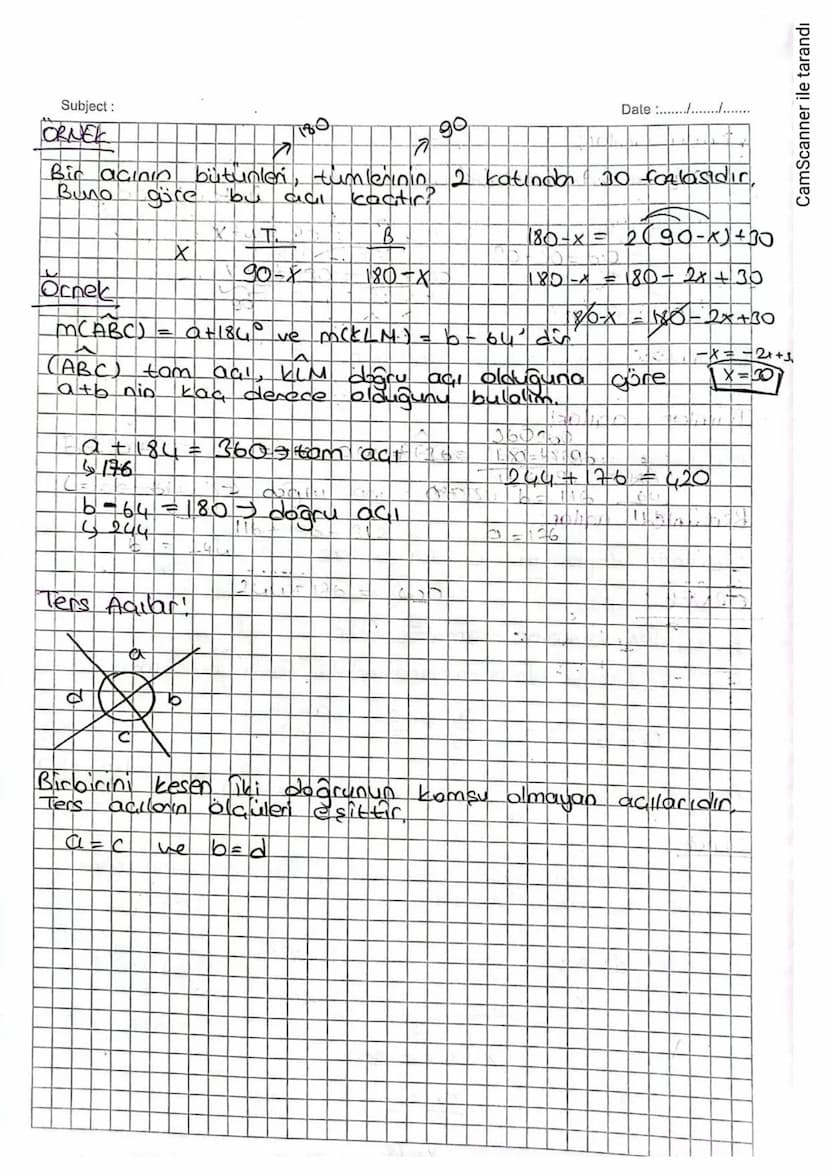 CamScanner ile tarandı
Subject :
Date :......./......./.......
ÖRNEK
180
90
Bir açının bütünleri, tümlerinin 2 katından 30 fazlasıdır.
Buna göre bu açı kaçtır?
T.
B
x
90-x
180-x
180-x = 2(90-x)+30
180-x = 180- 2x+30
180-x = 180-2x+30
-x = -2x+3
x=30
Örnek
m(ABC) = a+184° ve m(KLM) = b-64' dir
(ABC) tam açı, KLM doğru açı olduğuna göre
a+b nin kaç derece olduğunu bulalım.
a+184 = 360→tam açı
↳176
244+176 = 420
b-64 =180→ doğru açı
↳ 244
Ters Açılar!
a
d
b
c
Birbirini kesen iki doğrunun komşu olmayan açılarıdır.
Ters açıların ölçüleri eşittir.
a=c ve b=d